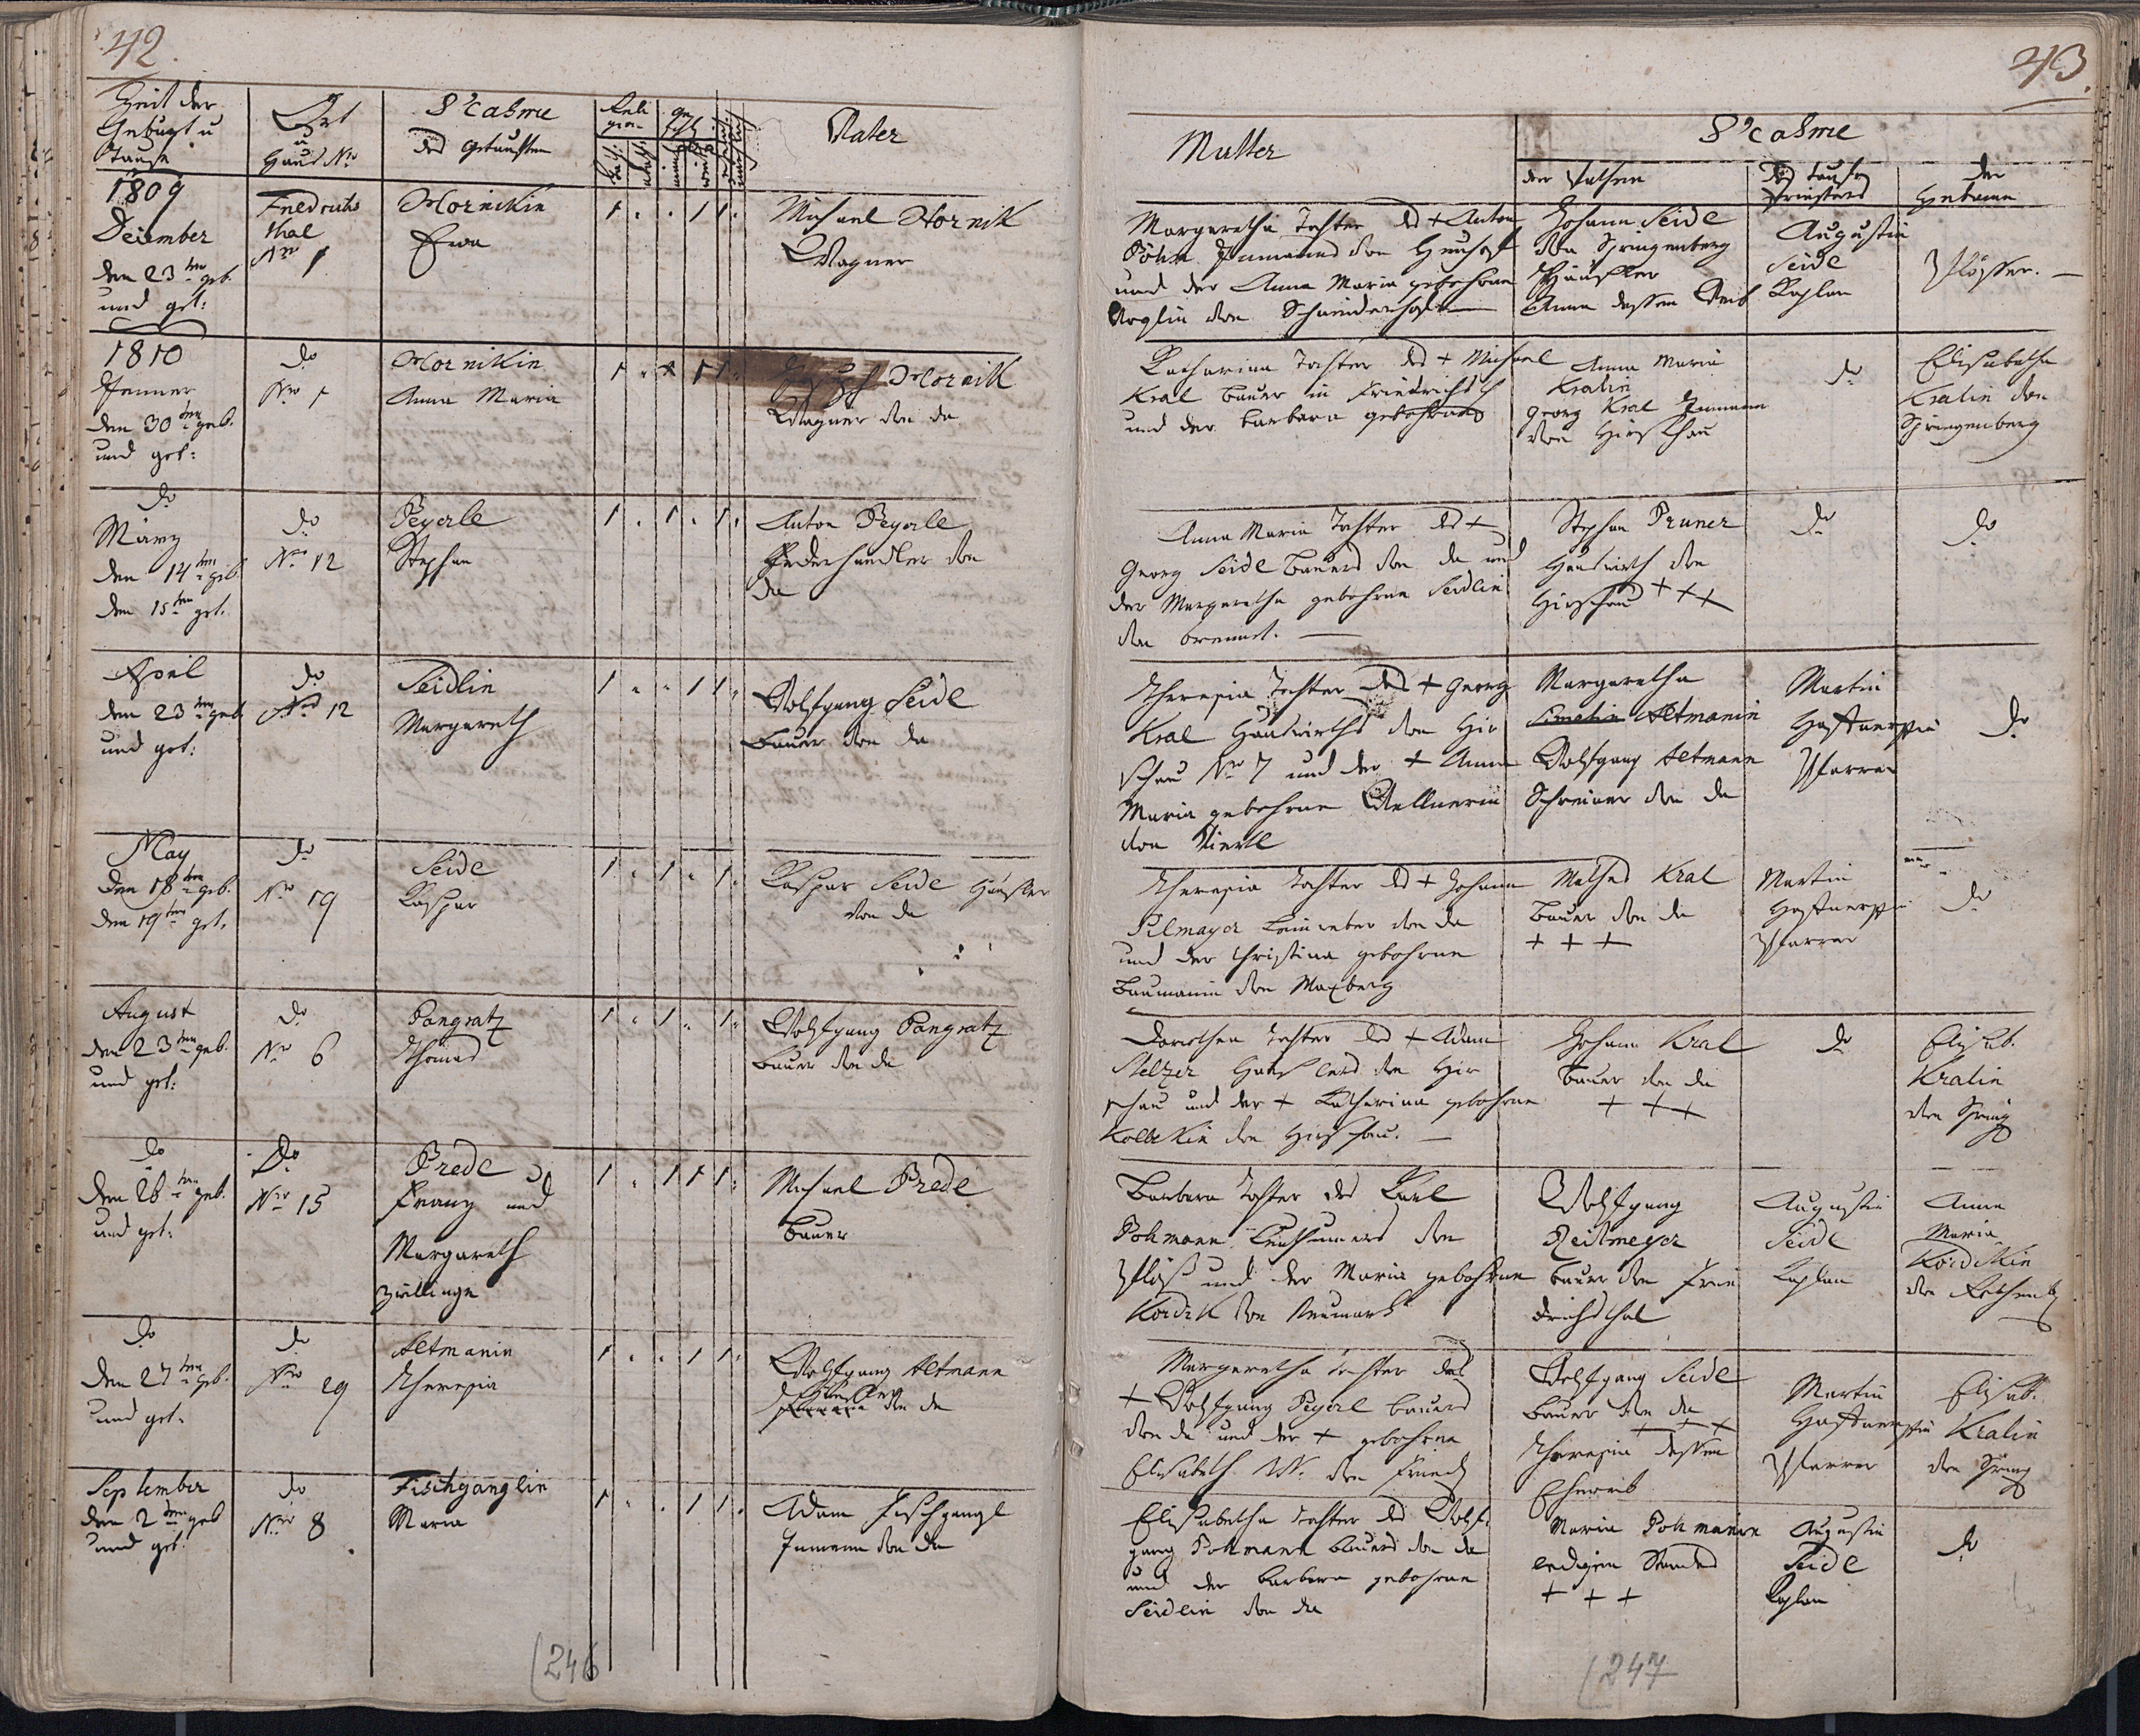 42.
Zeit der
Geburt u
Taufe
Ort
u
Haus Nro
Nahme
des Getauften
Reli
gion
Vater
1809
December
den 23ten geb.
und get:
Friedrichs
thal
Nro 1
Hornikin
Eva
1 . . 1 1 .
Michael Hornik
Wagner
1810
Jenner
den 30ten geb.
und get:
do
Nro 1
Hornikin
Anna Maria
Hornik
Wagner von da
do
März
den 14ten geb.
den 15ten get.
do
Nro 12
Peyerle
Stephan
1 . 1 . 1 .
Anton Peyerle
Federhandler von
da
April
den 23ten geb.
und get:
do
Nro 12
Seidlin
Margareth
1 . . 1 1 .
Wolfgang Seidl
Bauer von da
May
den 18ten geb.
den 19ten get.
do
Nro 19
Seidl
Kaspar
1 . 1 . 1 .
Kaspar Seidl Häusler
von da
August
den 23ten geb.
und get:
do
Nro 6
Pangratz
Thomas
1 . 1 . 1 .
Wolfgang Pangratz
Bauer von da
do
den 26ten geb.
und get:
do
Nro 15
Predl
Franz und
Margareth
Zwillinge
1 . 1 1 1 .
Michael Predl
Bauer
do
den 27ten geb.
und get.
do
Nro 29
Altmanin
Theresia
1 . . 1 1 .
Wolfgang Altmann
von da
September
den 2ten geb
und get.
do
Nro 8
Fischganglin
Maria
1 . . 1 1 .
Adam Fischgangl
Inmann von da
(246
43.
Mutter
Nahme
der Pathen
des Tauf
Priesters
der
Hebame
Margaretha Tochter des + Anton
Böhm Inmanns von Heuhof
und der Anna Maria gebohrne
Voglin von Schneiderhof
Johann Seidl
von Springenberg
Häusler
Anna dessen Weib
Augustin
Seidl
Kaplan
Katharina Tochter des + Michael
Kral Bauer in Friedrichsth
und der Barbara gebohrne
Anna Maria
Kralin
Georg Kral Inmann
von Hirschau
do
Elisabetha
Kralin von
Springenberg
Anna Maria Tochter des +
Georg Seidl Bauers von da und
der Margaretha gebohrne Seidlin
von brennet.
Stephan Pruner
Hauswirth von
Hirschau + + +
do
do
Theresia Tochter des + Georg
Kral Hauswirths von Hir
schau Nro 7 und der + Anna
Maria gebohrne Wellnerin
von Viertl
Margaretha
Altmanin
Wolfgang Altmann
Schreiner von da
Martin
Pfarrer
do
Theresia Tochter des + Johann
Pilmayer Leinweber von da
und der Christina gebohrne
Baumanin von Maxberg
Mathes Kral
Bauer von da
+ + +
Martin
Pfarrer
do
Dorothea Tochter des + Adam
Stelzer Häuslers von Hir
schau und der + Katharina gebohrne
von Hirschau.
Johann Kral
Bauer von da
+ + +
do
Elisab.
Kralin
von Spring
Barbara Tochter des Karl
Pohmann von
und der Maria gebohrne
Kordik von Neumark
Wolfgang
Reitmeyer
Bauer von Frie
drichsthal
Augustin
Seidl
Kaplan
Anna
Maria
Kordikin
von Rothenb
Margaretha Tochter des
+ Wolfgang Peyerl Bauers
von da und der + gebohrne
Elisabeth N. von Friedr
Wolfgang Seidl
Bauer von da
+ + +
Theresia dessen
Eheweib
Martin
Pfarrer
Elisab.
Kralin
von Spring
Elisabetha Tochter des Wolf
gang Pohmann Bauers von da
und der Barbara gebohrne
Seidlin von da
Maria Pohmanin
ledigen Standes
+ + +
Augustin
Seidl
Kaplan
do
(247